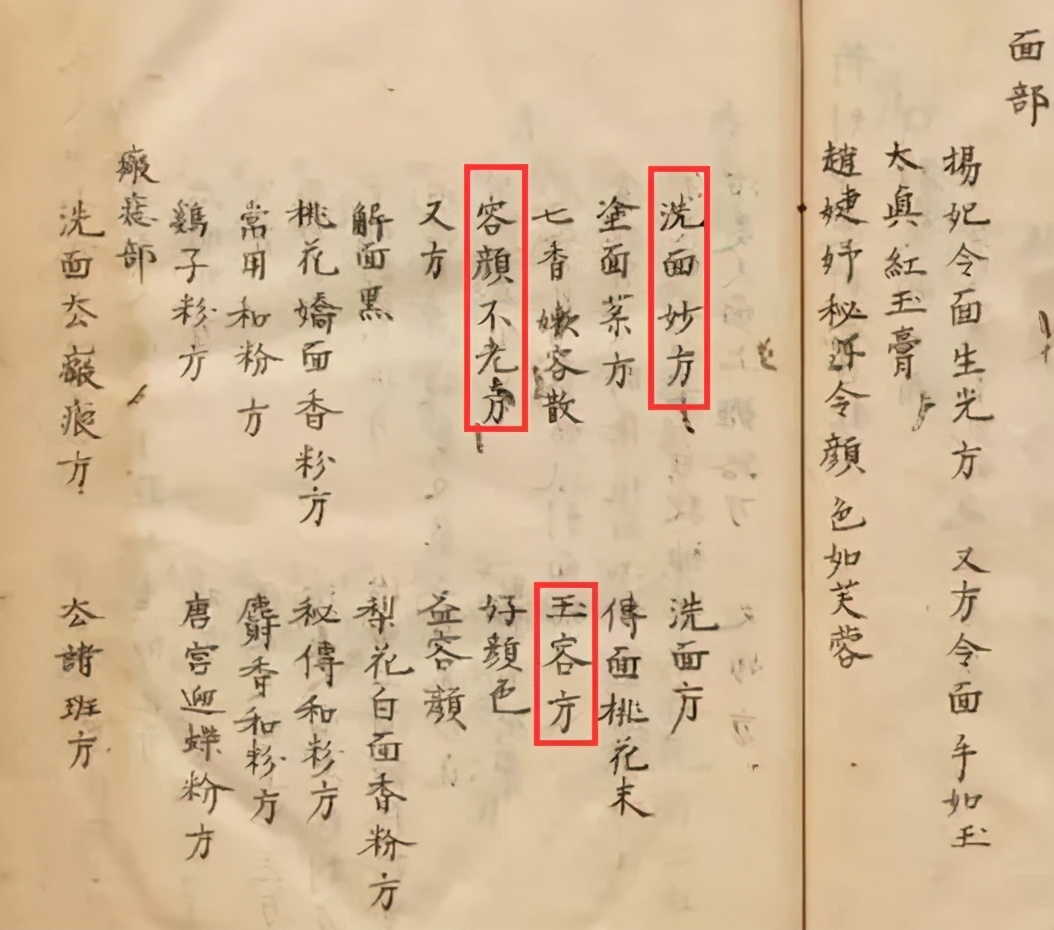 面部
楊妃令面生光方 又方令面手如玉
太眞紅玉膏
趙婕妤秘訶令顔色如芙蓉
洗面妙方 洗面方
塗面藥方 傅面桃花末
七香嫩容散 玉容方
容顔不老方 好顔色
又方 益容顔
解面黑 梨花白面香粉方
桃花嬌面香粉方 秘傳和粉方
常用和粉方 麝香和粉方
鷄子粉方 唐宮迎蝶粉方
瘢痣部
洗面厺瘢痕方 厺諸班方